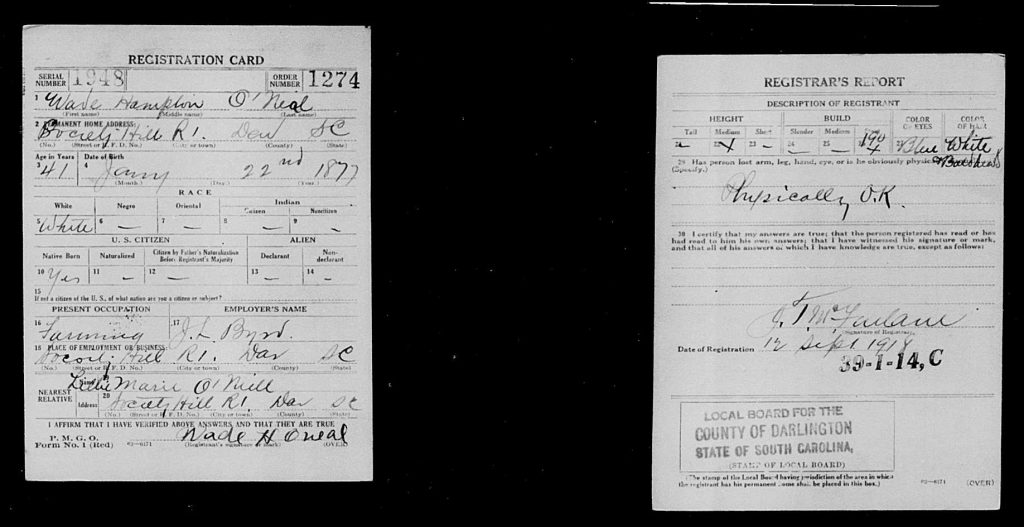 REGISTRATION CARD
SERIAL NUMBER 1948 ORDER NUMBER 1274
1 Wade Hampton O'Neal
(First name) (Middle name) (Last name)
2 PERMANENT HOME ADDRESS:
Society Hill R1. Dar SC
(No.) (Street or R. F. D. No.) (City or town) (County) (State)
Age in Years Date of Birth
3 41 4 Jany 22nd 1877
(Month.) (Day.) (Year.)
RACE
White Negro Oriental Indian
Citizen Noncitizen
5 White 6 – 7 – 8 – 9 –
U. S. CITIZEN ALIEN
Native Born Naturalized Citizen by Father's Naturalization Before Registrant's Majority Declarant Non-declarant
10 Yes 11 – 12 – 13 – 14 –
15
If not a citizen of the U. S., of what nation are you a citizen or subject?
PRESENT OCCUPATION EMPLOYER'S NAME
16 Farming 17 J. L. Byrd.
18 PLACE OF EMPLOYMENT OR BUSINESS:
Society Hill R1. Dar SC
(No.) (Street or R. F. D. No.) (City or town) (County) (State)
NEAREST RELATIVE Name 19 Lillie Marie O'Niell
Address 20 Society Hill R1 Dar SC
(No.) (Street or R. F. D. No.) (City or town) (County) (State)
I AFFIRM THAT I HAVE VERIFIED ABOVE ANSWERS AND THAT THEY ARE TRUE
P. M. G. O.
Form No. 1 (Red) 03—6171 Wade H Oneal
(Registrant's signature or mark) (OVER)
REGISTRAR'S REPORT
DESCRIPTION OF REGISTRANT
HEIGHT BUILD COLOR OF EYES COLOR OF HAIR
Tall Medium Short Slender Medium Stout
21 – 22 X 23 – 24 – 25 – 190 X Blue White
29 Has person lost arm, leg, hand, eye, or is he obviously physically
(Specify.)
Physically O.K.
30 I certify that my answers are true; that the person registered has read or has
had read to him his own answers; that I have witnessed his signature or mark,
and that all of his answers of which I have knowledge are true, except as follows:
J. T. McFarlane
(Signature of Registrar)
Date of Registration 12 Sept 1918
39-1-14, C
LOCAL BOARD FOR THE
COUNTY OF DARLINGTON
STATE OF SOUTH CAROLINA,
(STAMP OF LOCAL BOARD)
(The stamp of the Local Board having jurisdiction of the area in which
the registrant has his permanent home shall be placed in this box.)
03—6171 (OVER)